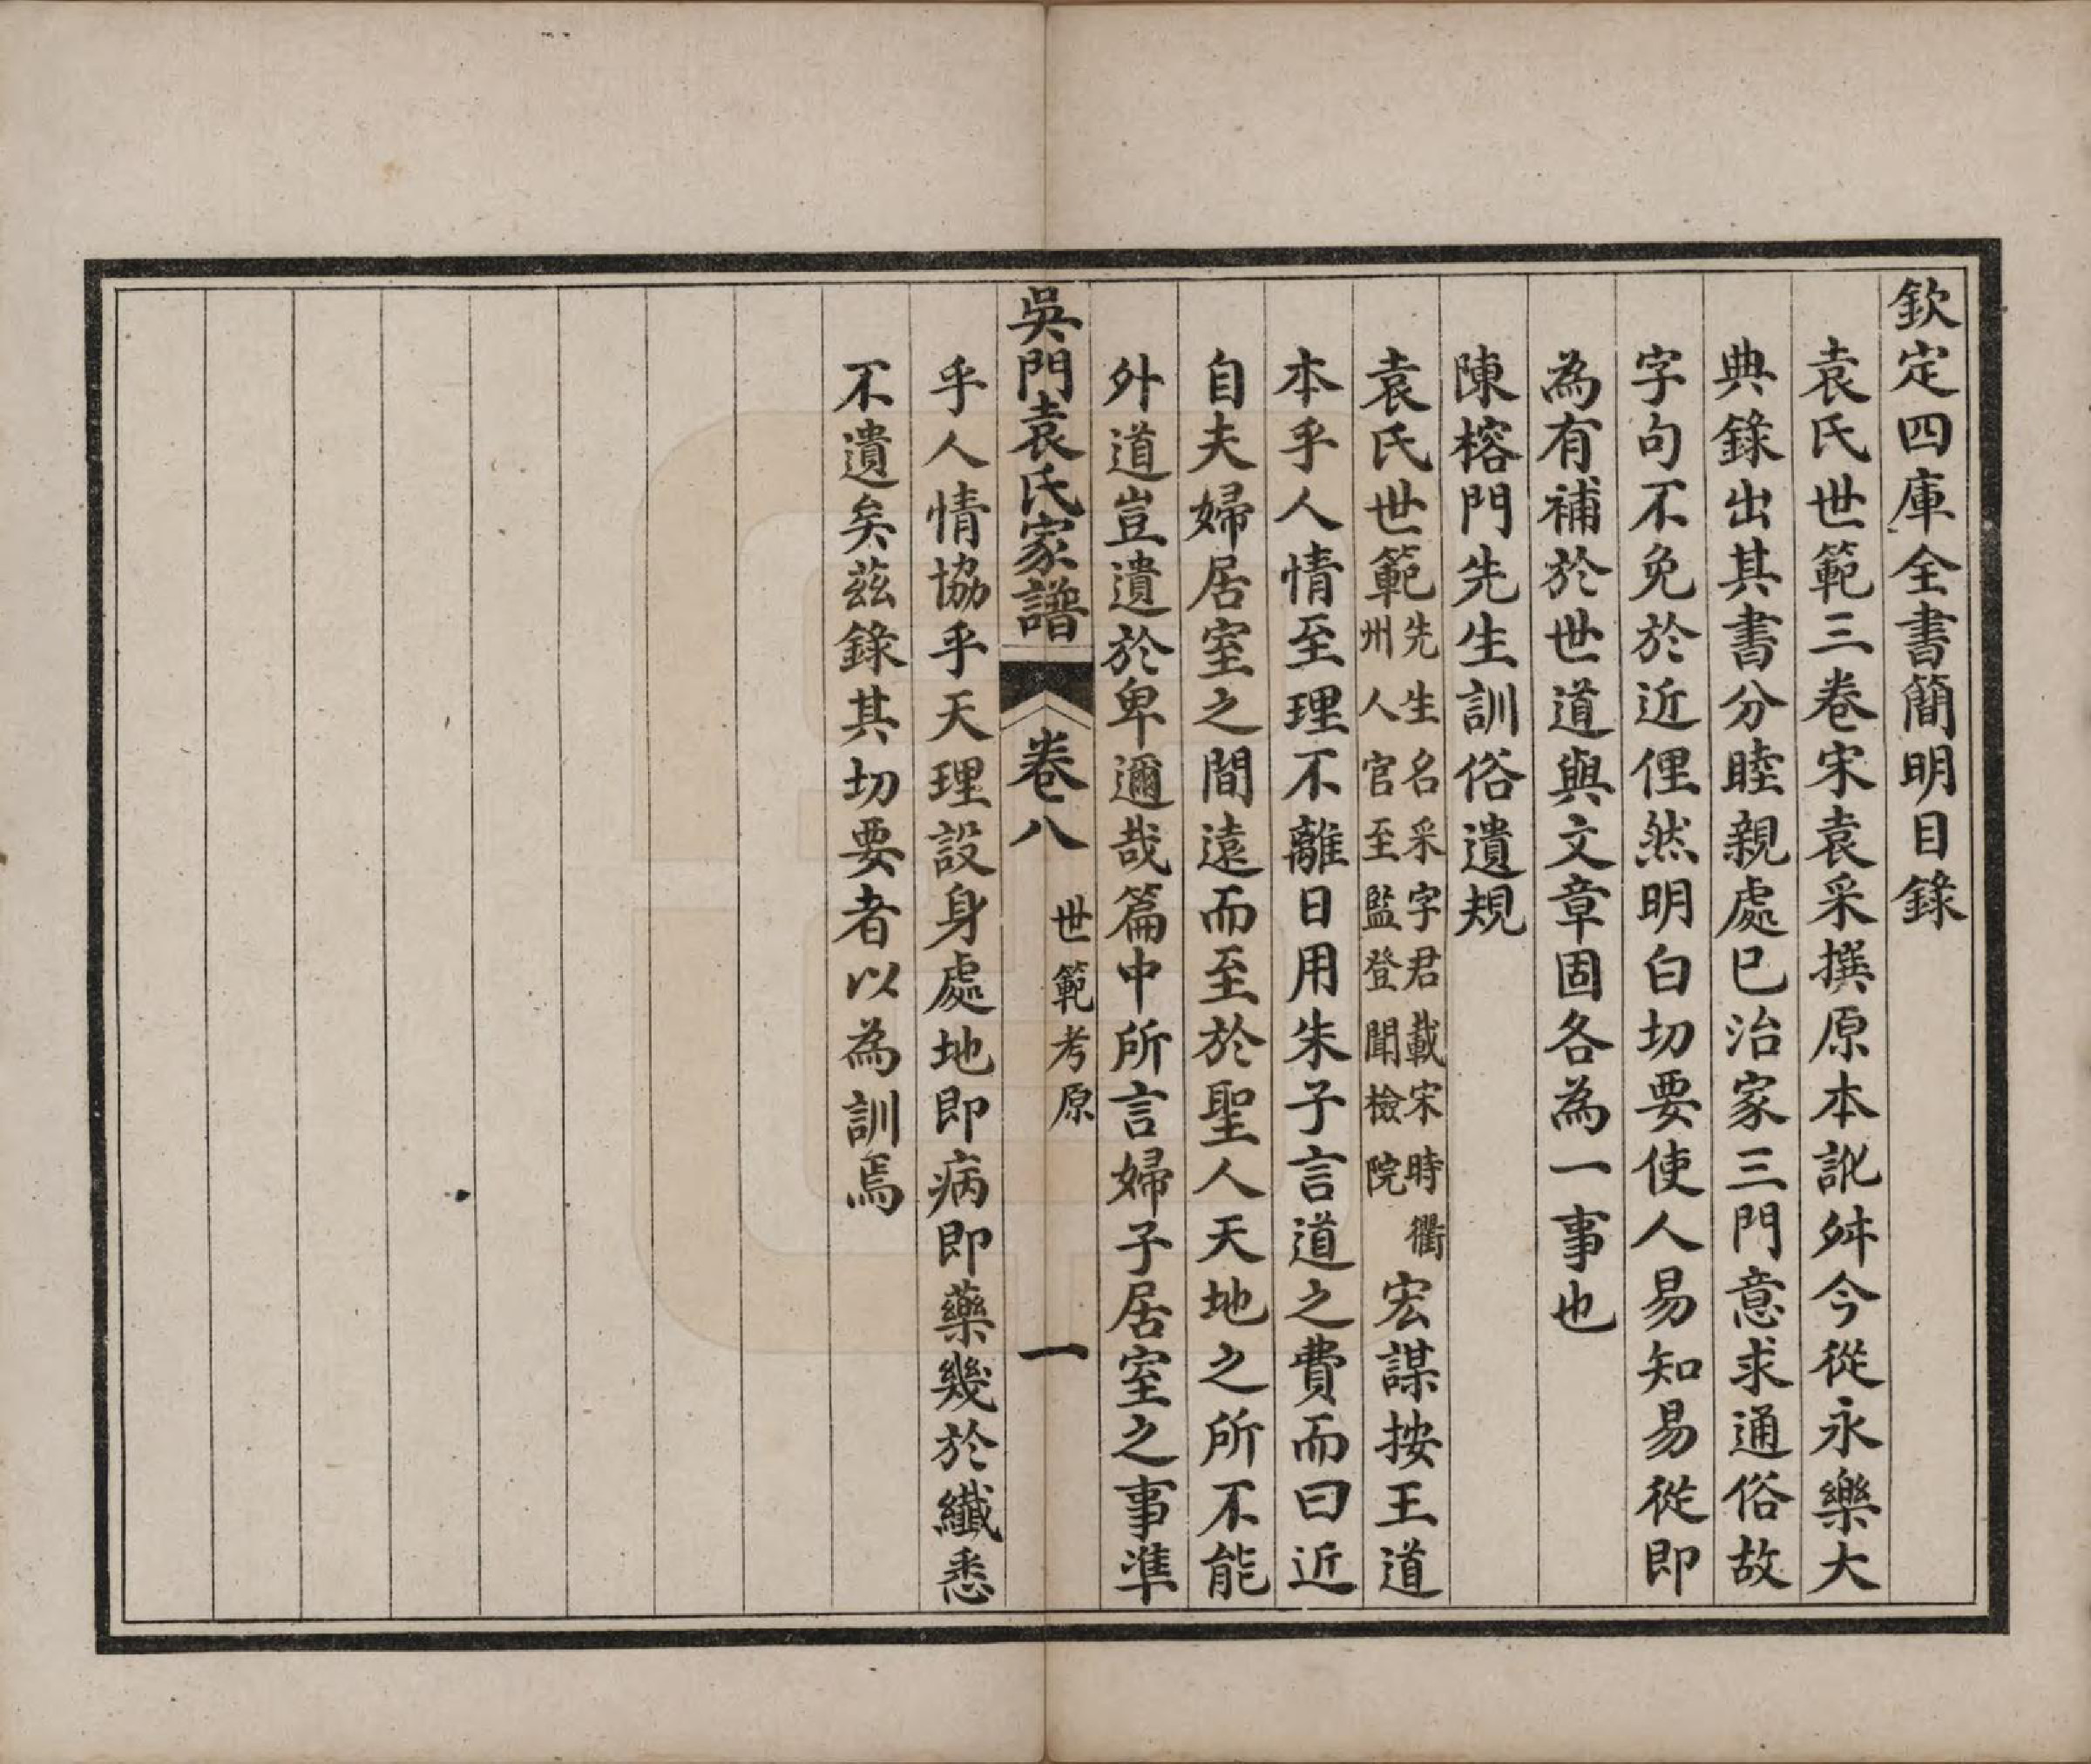 欽定四庫全書簡明目錄
袁氏世範三卷宋袁采撰原本訛舛今從永樂大
典錄出其書分睦親處已治家三門意求通俗故
字句不免於近俚然明白切要使人易知易從即
為有補於世道與文章固各為一事也
陳榕門先生訓俗遺規
袁氏世範先生名采字君載宋時衢州人官至監登聞檢院宏謀按王道
本乎人情至理不離日用朱子言道之費而曰近
自夫婦居室之間遠而至於聖人天地之所不能
外道豈遺於卑邇哉篇中所言婦子居室之事準
吳門袁氏家譜 卷八 世範考原 一
乎人情協乎天理設身處地即病即藥幾於纖悉
不遺矣茲錄其切要者以為訓焉